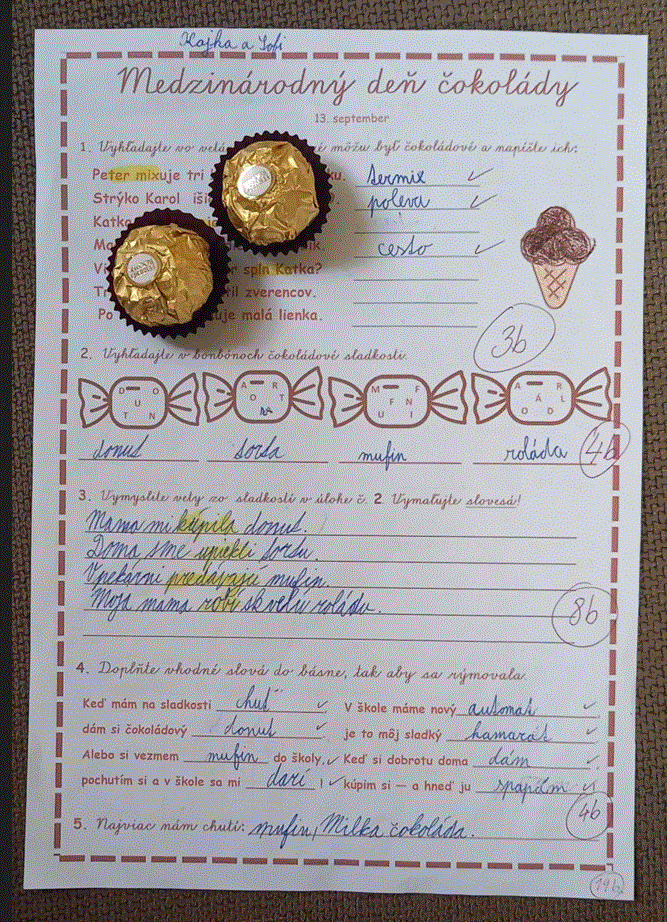 Kajka a Sofi
Medzinárodný deň čokolády
13. september
1. Vyhľadajte vo môžu byť čokoládové a napíšte ich:
Peter mixuje tri termix
Strýko Karol poleva
cesto
spln Katka?
zverencov.
malá lienka.
3b
2. Vyhľadajte v bonbónoch čokoládové sladkosti.
D O U T N
A R O T
M F F N U I
A R Á L O D
donut torta mufin roláda 4b
3. Vymyslite vety zo sladkostí v úlohe č. 2. Vymaľujte slovesá!
Mama mi kúpila donut.
Doma sme upiekli tortu.
V pekárni predávajú mufin.
Moja mama robí skvelú roládu.
8b
4. Doplňte vhodné slová do básne, tak aby sa rýmovala.
Keď mám na sladkosti chuť V škole máme nový automat
dám si čokoládový donut je to môj sladký kamarát
Alebo si vezmem mufin do školy, Keď si dobrotu doma dám
pochutím si a v škole sa mi darí! kúpim si — a hneď ju spapám
4b
5. Najviac mám chuť: mufin, Milka čokoláda.
19b